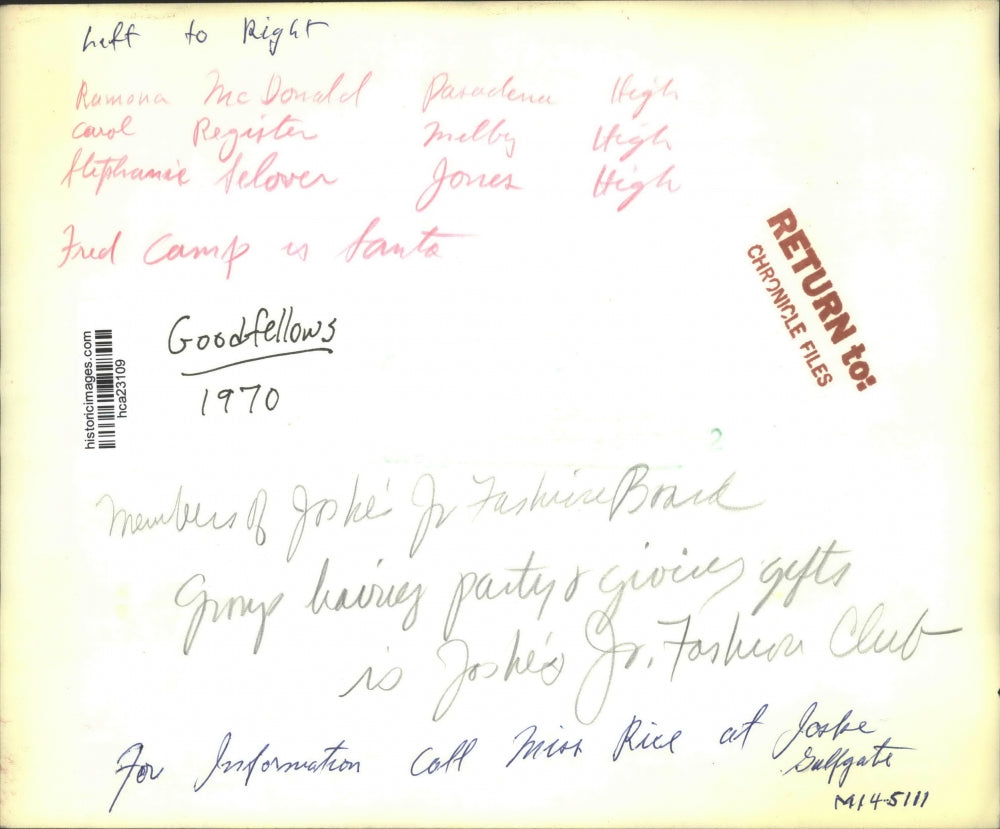 Left to Right
Ramona McDonald Pasadena High
Carol Register Milby High
Stephanie Selover Jones High
Fred Camp is Santa
RETURN to:
CHRONICLE FILES
Goodfellows
1970
historicimages.com
hca23109
2
Members of Joske's Jr Fashion Board
Group having party & giving gifts
is Joske's Jr. Fashion Club
For Information call Miss Rice at Joske
Gulfgate
M14-5111